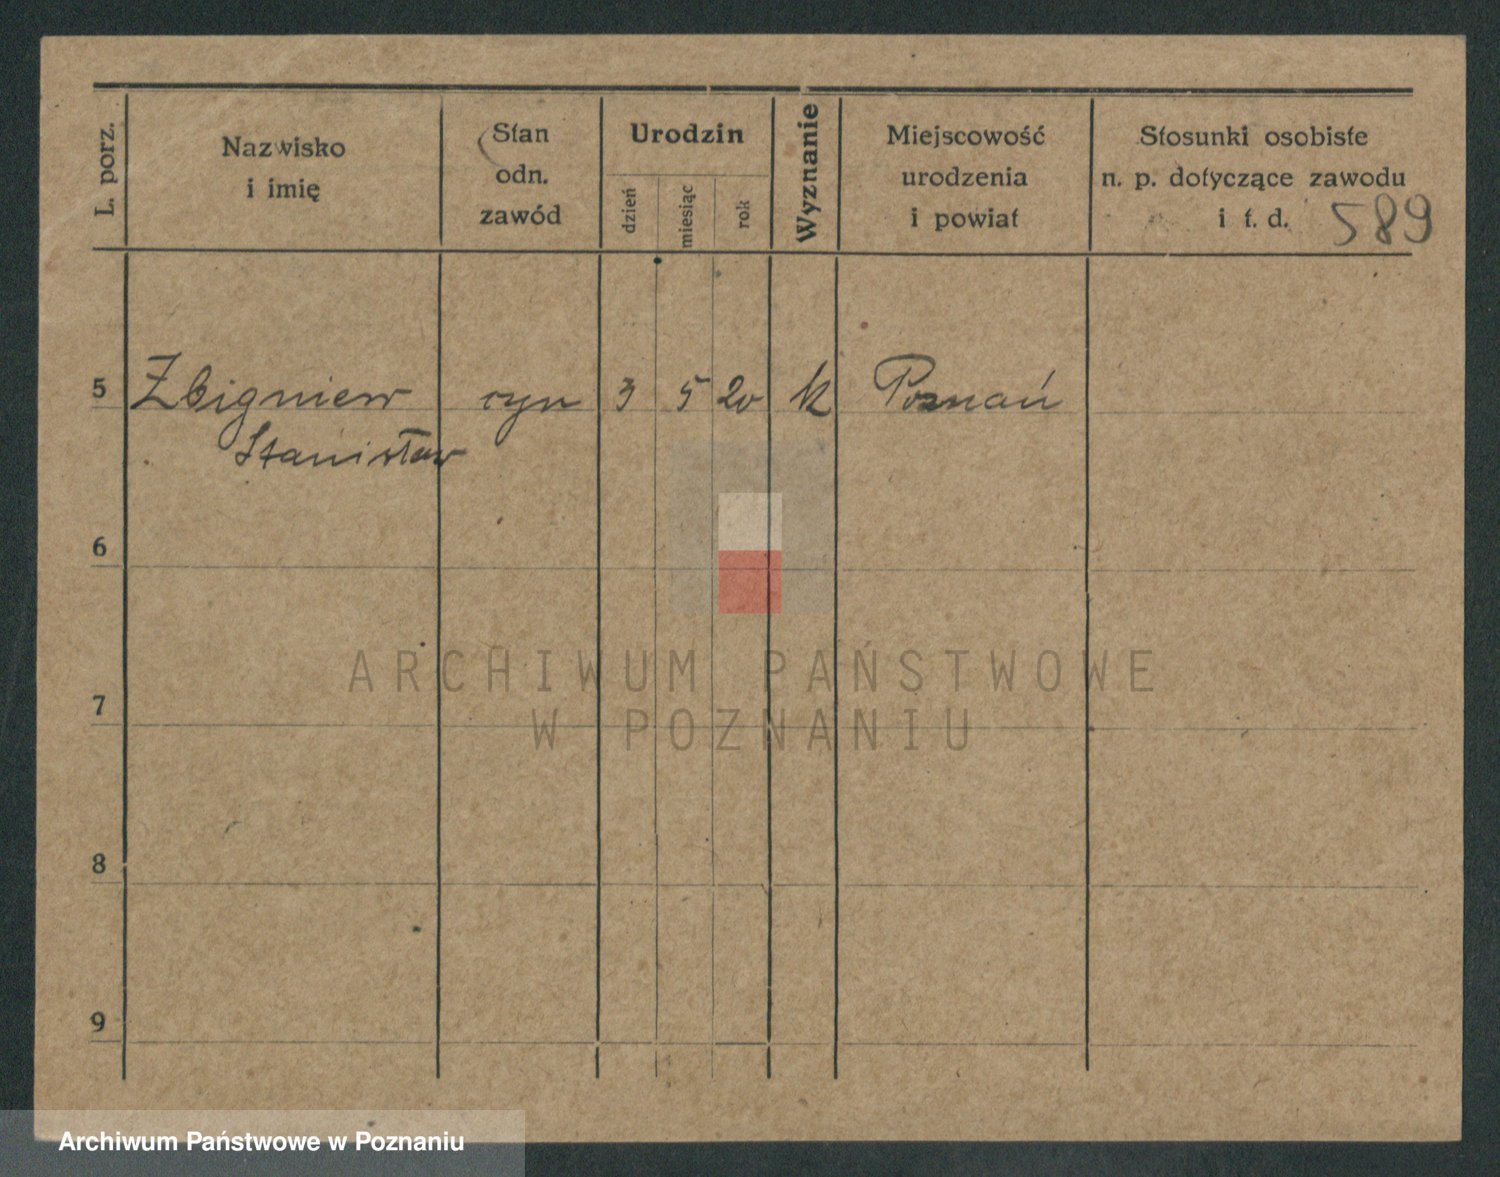 L. porz.
Nazwisko
i imię
Stan
odn.
zawód
Urodzin
dzień
miesiąc
rok
Wyznanie
Miejscowość
urodzenia
i powiat
Stosunki osobiste
n. p. dotyczące zawodu
i t. d.
589
5 Zbigniew syn 3 5 20 k Poznań
Stanisław
6
ARCHIWUM PAŃSTWOWE
7
W POZNANIU
8
9
Archiwum Państwowe w Poznaniu